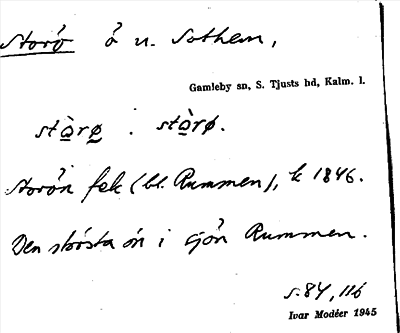 Storö ö n. Sothem,
Gamleby sn, S. Tjusts hd, Kalm. l.
stàrø . stàrø.
Storön fsk (bl. Rummen), k 1846.
Den största ön i sjön Rummen.
s. 84, 116
Ivar Modéer 1945